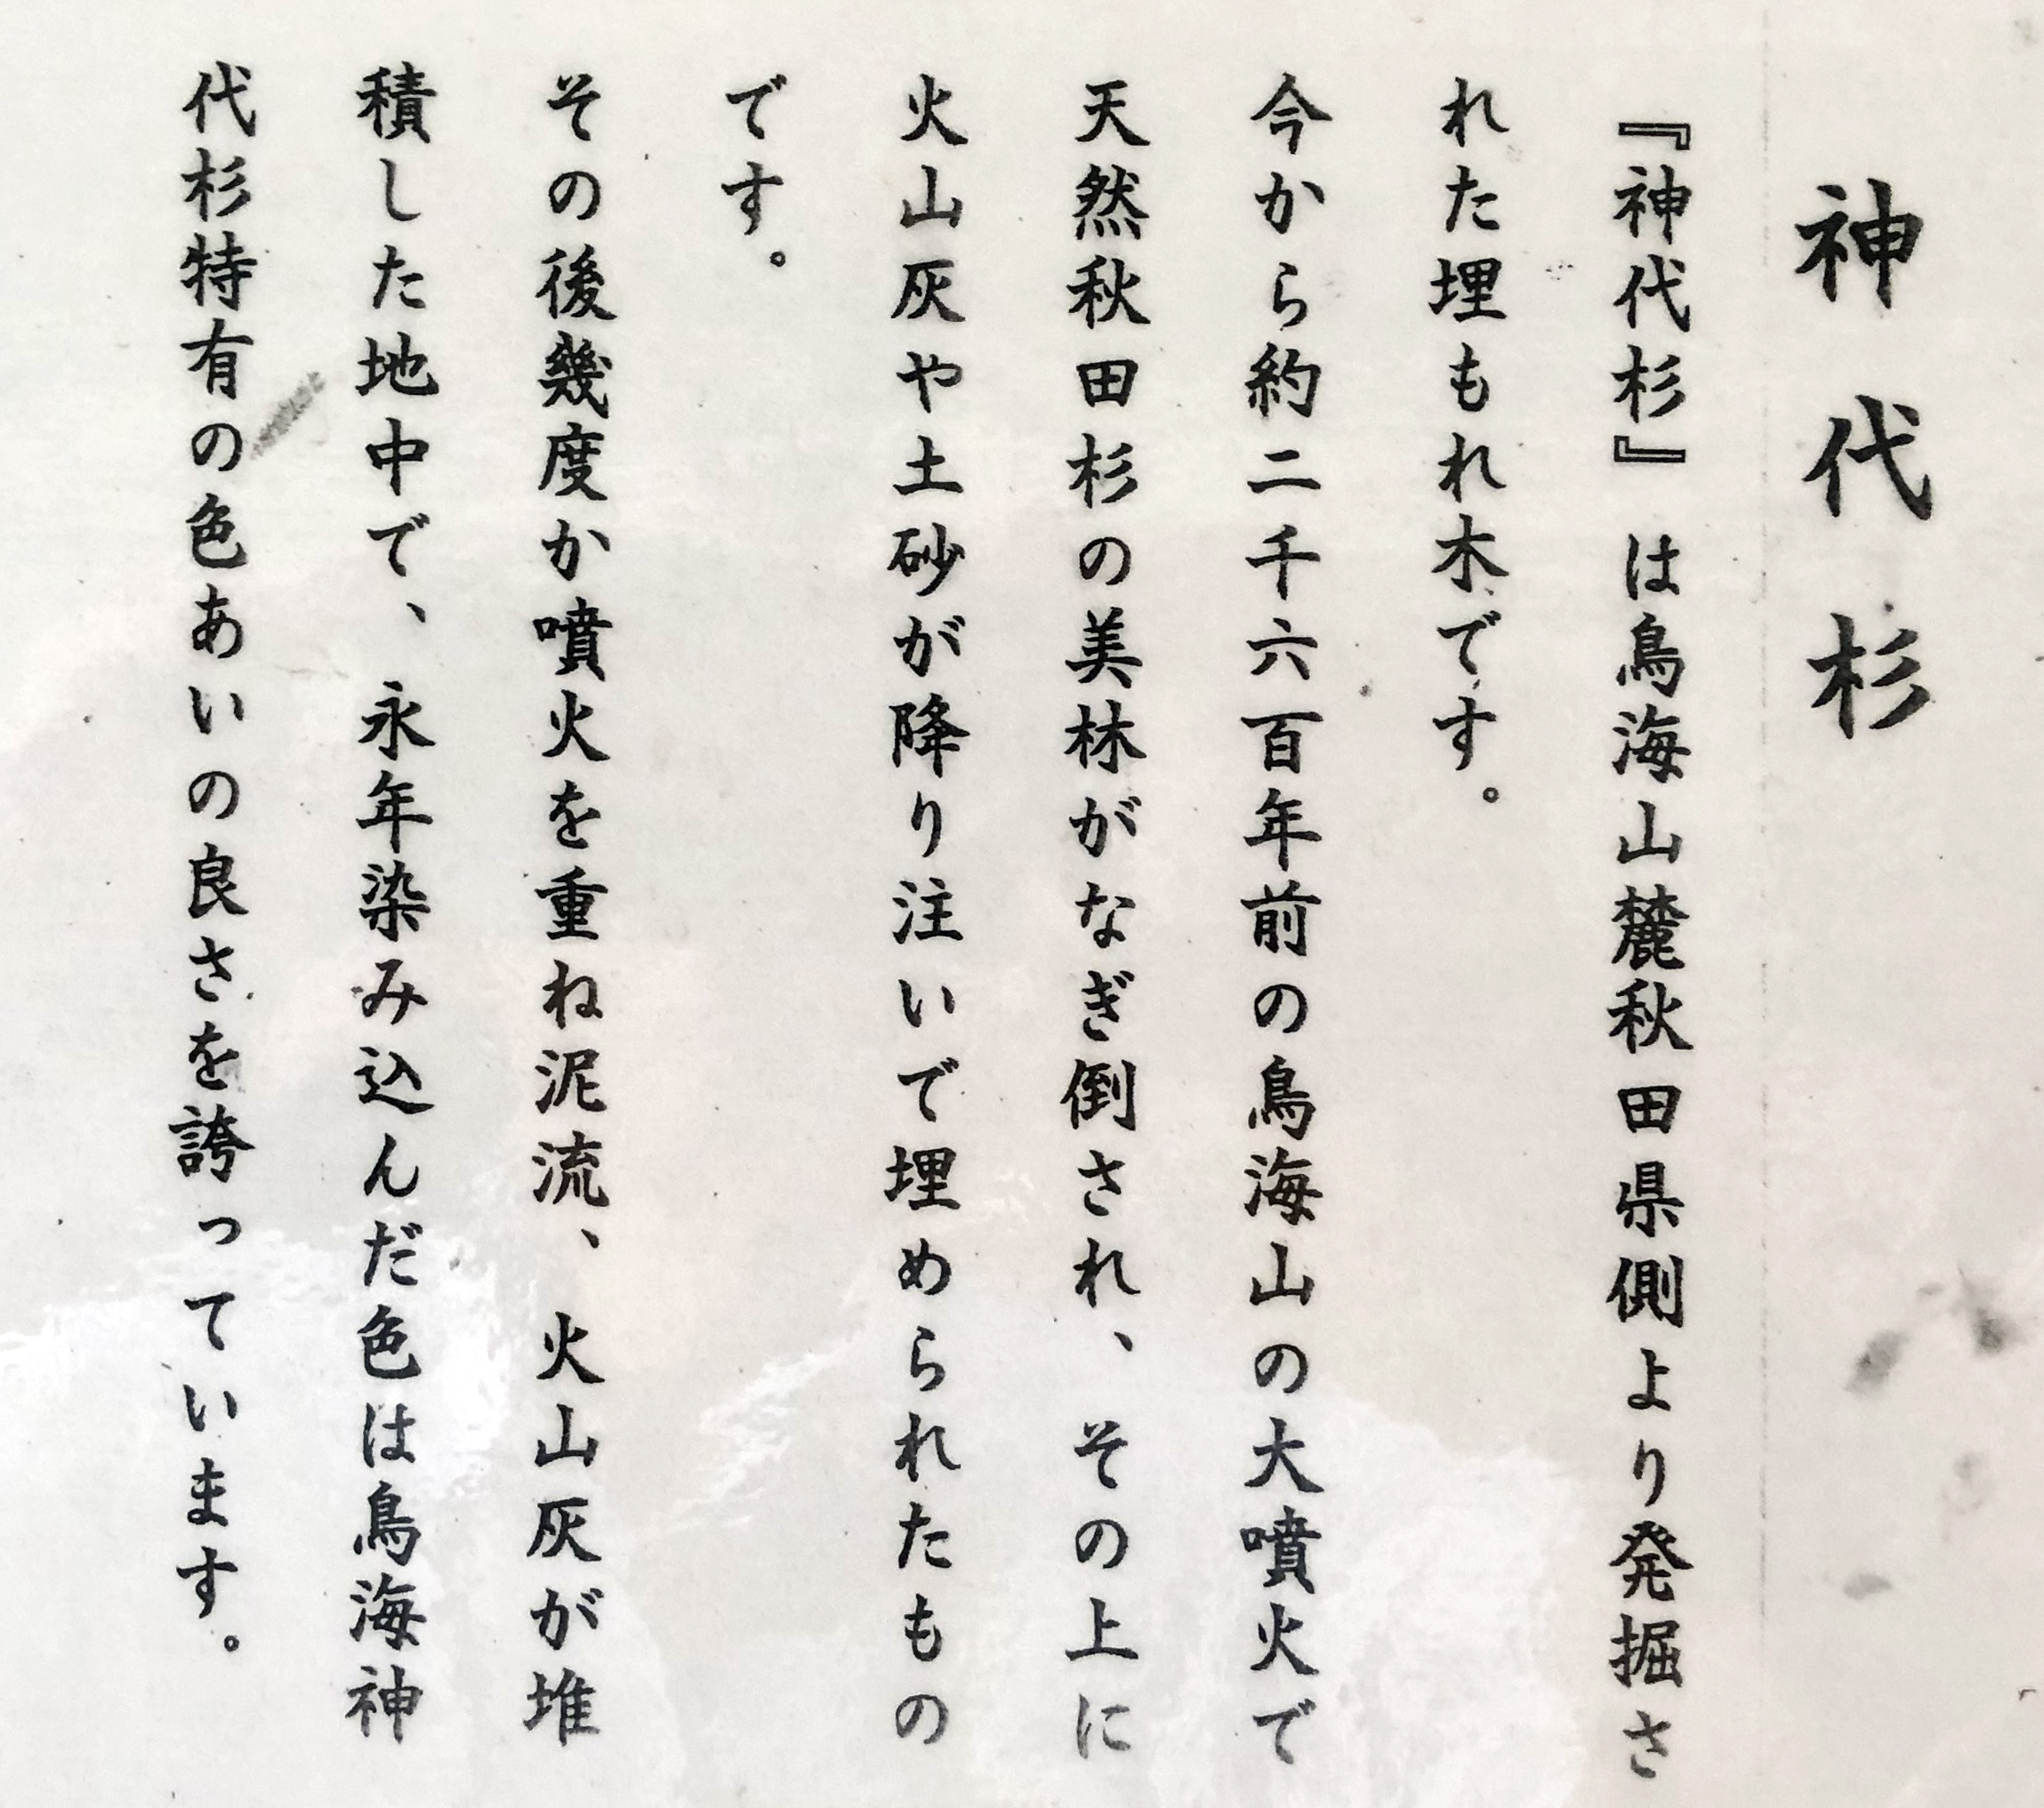 神代杉
『神代杉』は鳥海山麓秋田県側より発掘さ
れた埋もれ木です。
今から約二千六百年前の鳥海山の大噴火で
天然秋田杉の美林がなぎ倒され、その上に
火山灰や土砂が降り注いで埋められたもの
です。
その後幾度か噴火を重ね泥流、火山灰が堆
積した地中で、永年染み込んだ色は鳥海神
代杉特有の色あいの良さを誇っています。